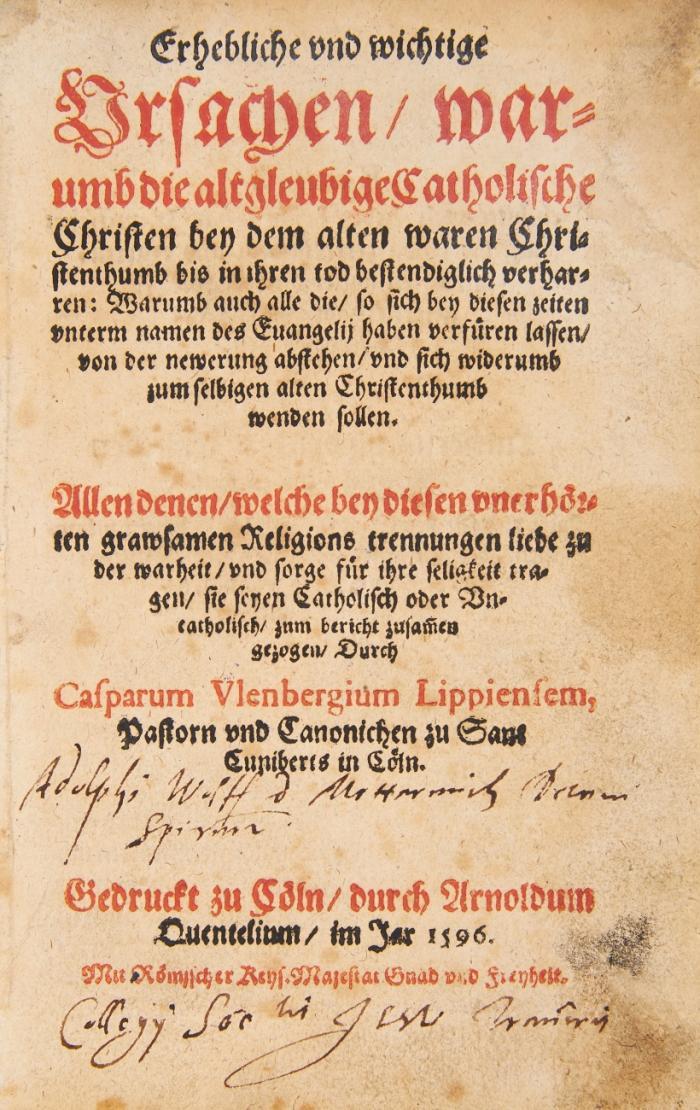 Erhebliche vnd wichtige
Vrsachen/ war⸗
umb die altgleubige Catholische
Christen bey dem alten waren Chri⸗
stenthumb bis in ihren tod bestendiglich verhar⸗
ren: Warumb auch alle die/ so sich bey diesen zeiten
vnterm namen des Euangelij haben verfüren lassen/
von der newerung abstehen/ vnd sich widerumb
zum selbigen alten Christenthumb
wenden sollen.
Allen denen/ welche bey diesen vnerhör⸗
ten grawsamen Religions trennungen liebe zu
der warheit/ vnd sorge für ihre seligkeit tra⸗
gen/ sie seyen Catholisch oder Vn⸗
catholisch/ zum bericht zusam̄en
gezogen/ Durch
Casparum Vlenbergium Lippiensem,
Pastorn vnd Canonichen zu Sant
Cuniberts in Cöln.
Adolphi Wolff d Metternich Decani
Spiren
Gedruckt zu Cöln/ durch Arnoldum
Quentelium/ im Jar 1596.
Mit Römischer Keys. Majestat Gnad vnd Freyheit.
Collegij Soc